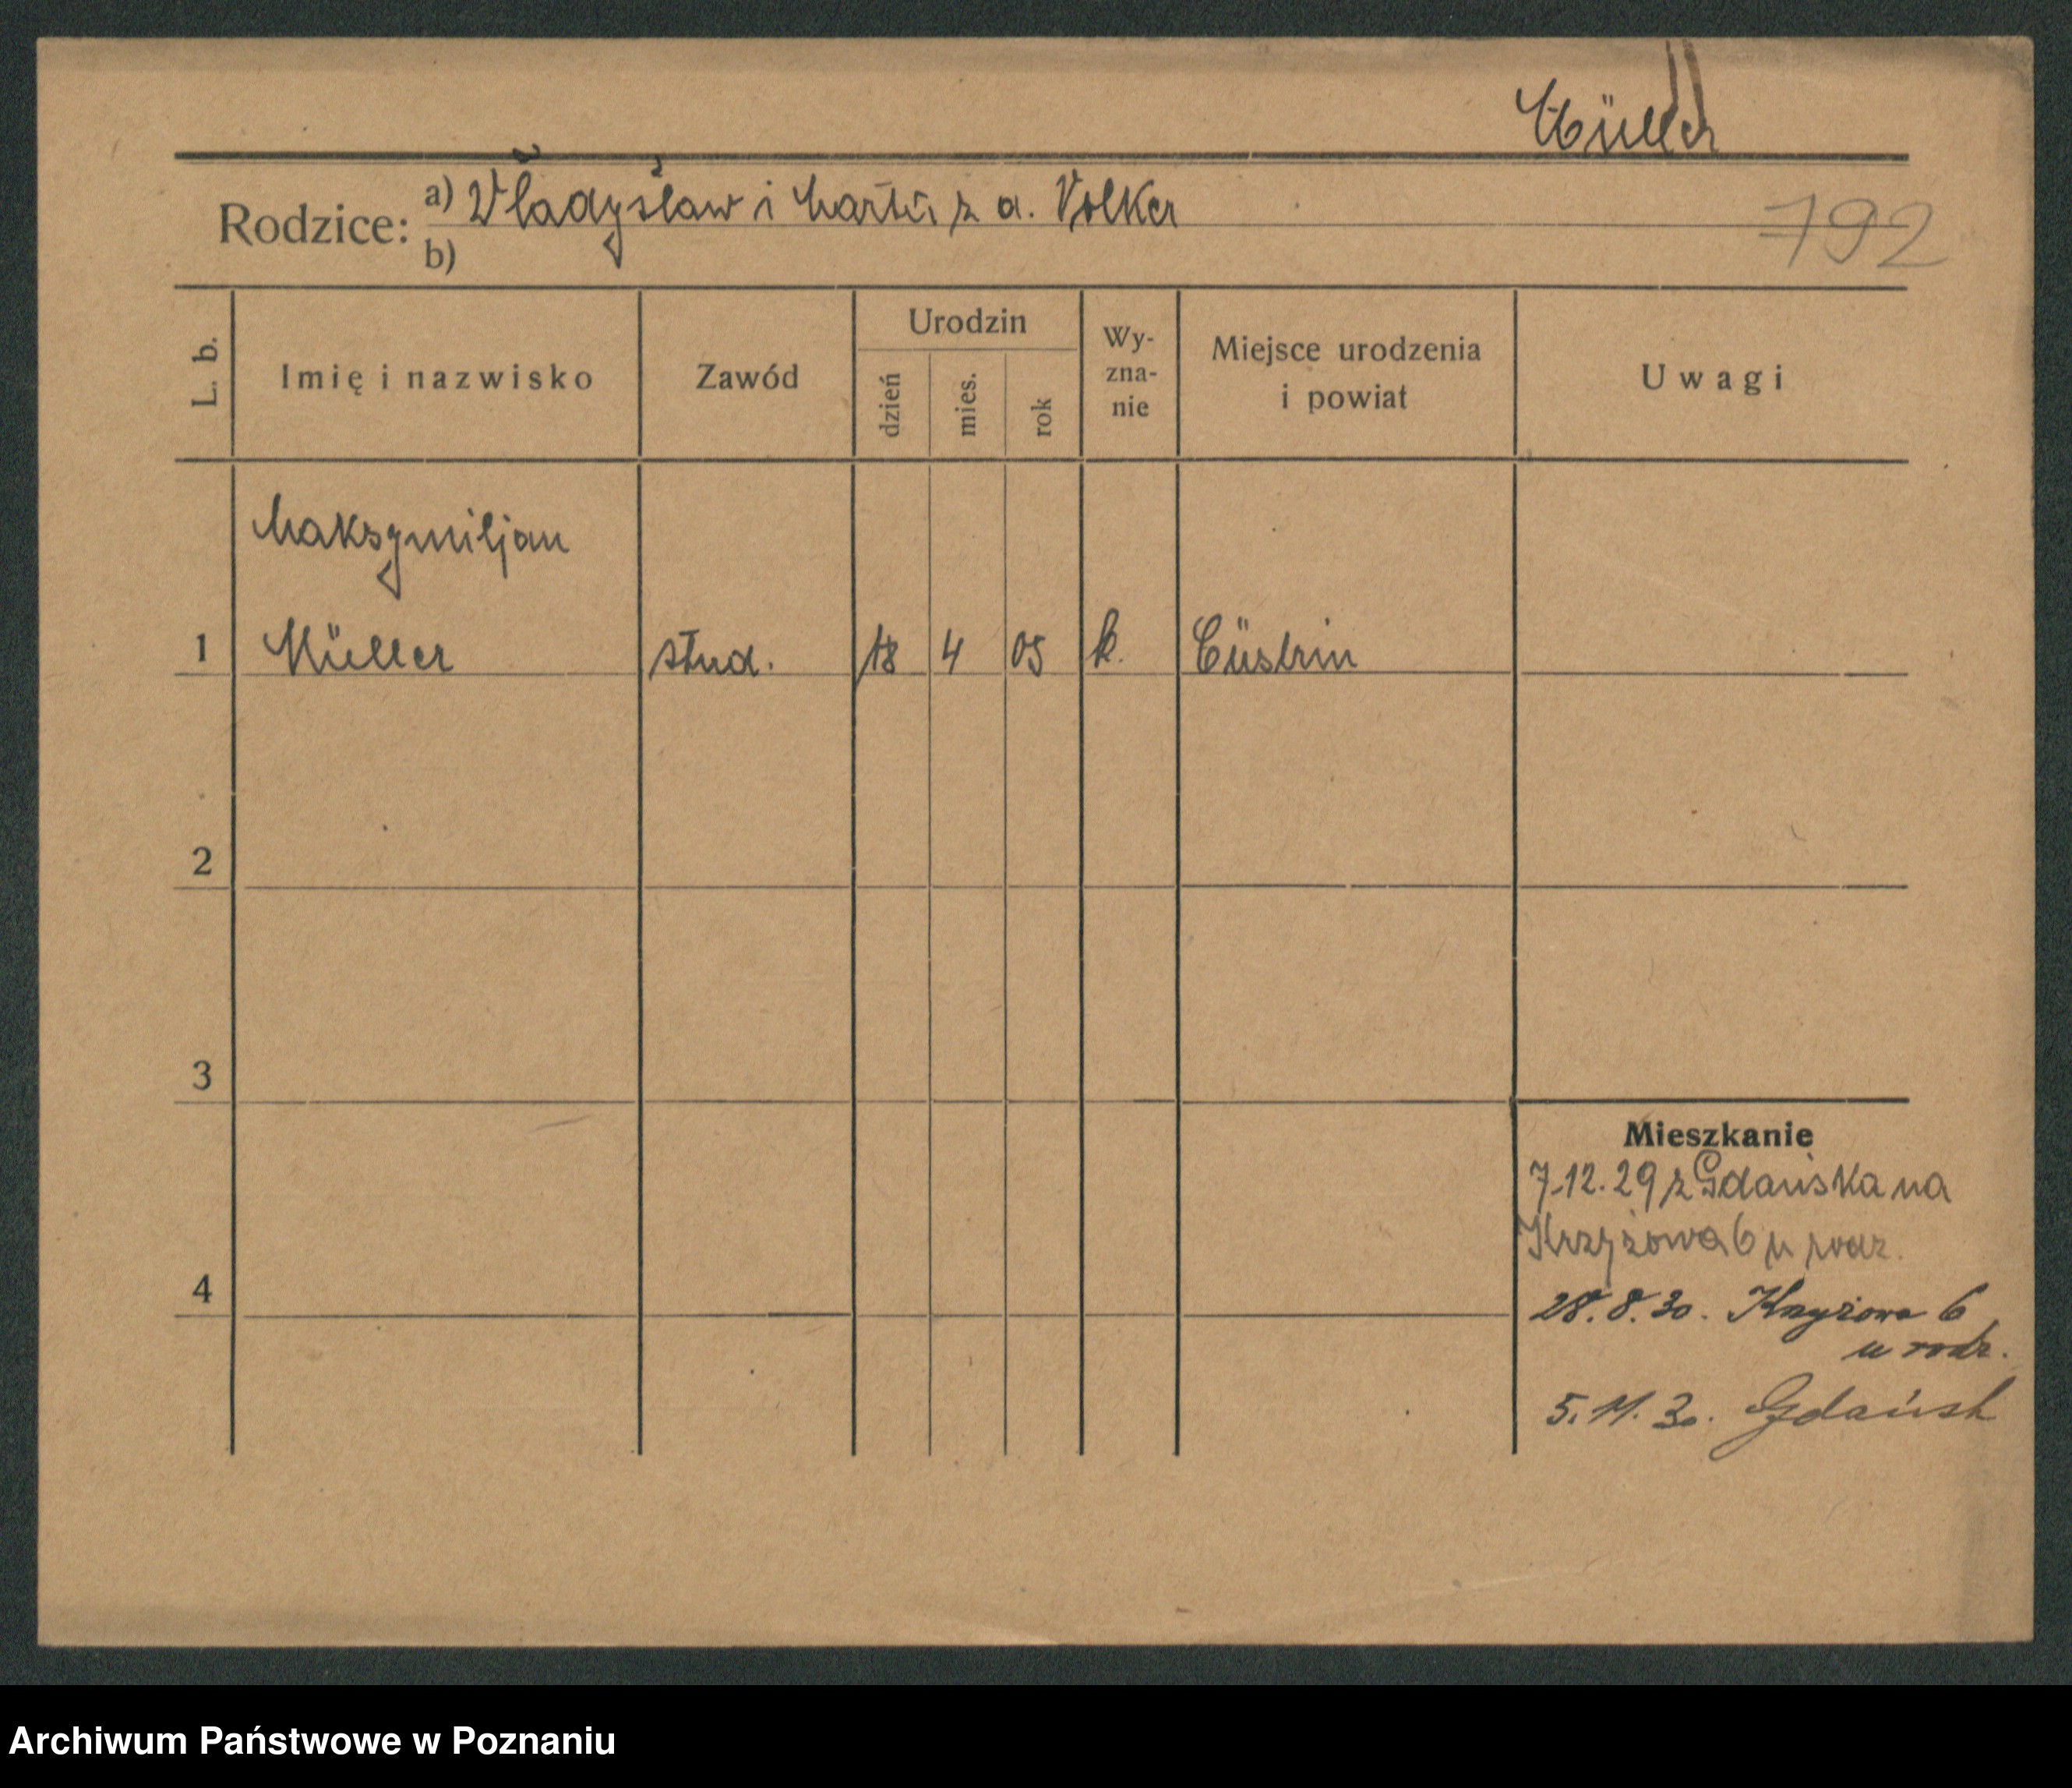 Müller
Rodzice: a) Władysław i Marta z d. Volker
792
b)
L. b.
Imię i nazwisko
Zawód
Urodzin
dzień
mies.
rok
Wy-
zna-
nie
Miejsce urodzenia
i powiat
Uwagi
Maksymiljan
1 Müller stud. 18 4 05 k. Cüstrin
2
3
Mieszkanie
7.12.29 z Gdańska na
Krzyżowa 6 u rodz.
4
28.8.30. Krzyżowa 6
u rodz.
5.11.30. Gdańsk
Archiwum Państwowe w Poznaniu